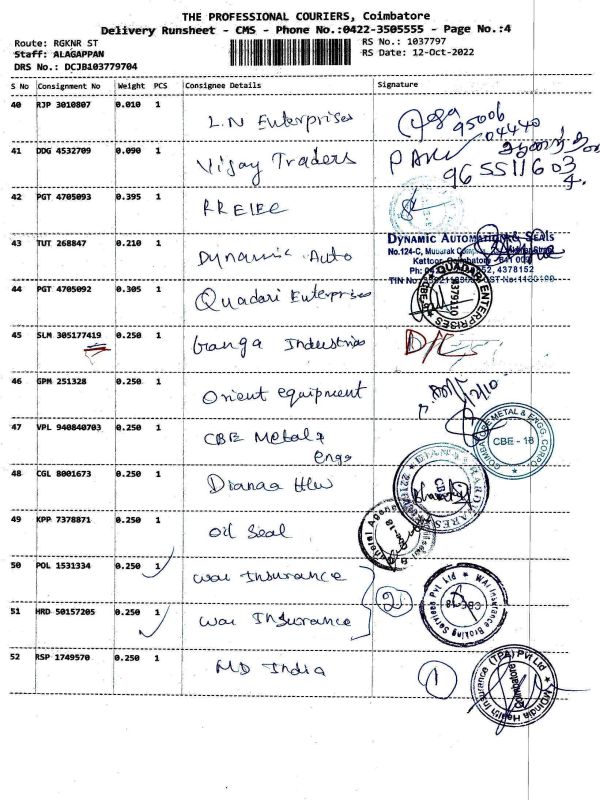 THE PROFESSIONAL COURIERS, Coimbatore
Delivery Runsheet - CMS - Phone No.:0422-3505555 - Page No.:4
Route: RGKNR ST
RS No.: 1037797
Staff: ALAGAPPAN
RS Date: 12-Oct-2022
DRS No.: DCJB103779704
S No Consignment No Weight PCS Consignee Details Signature
40 RJP 3010807 0.010 1 L.N Enterprises 95006 04440
41 DDG 4532709 0.090 1 Vijay Traders
42 PGT 4705093 0.395 1 RR ELEC
43 TUT 268847 0.210 1 Dynamic Auto
DYNAMIC AUTOMATION & SEALS
44 PGT 4705092 0.305 1 Quadari Enterprises
QUADARI ENTERPRISES
45 SLM 305177419 0.250 1 Ganga Industries D/C
46 GPM 251328 0.250 1 Orient equipment
47 VPL 940840703 0.250 1 CBE Metal &
Engg
COIMBATORE METAL & ENGG. CORPO
CBE - 18
48 CGL 8001673 0.250 1 Dianaa H/w
49 KPP 7378871 0.250 1 Oil Seal
50 POL 1531334 0.250 1 wai Insurance
2
51 HRD 50157205 0.250 1 wai Insurance
WAI Insurance Broking Services Pvt Ltd
CBE-18
52 RSP 1749570 0.250 1 MD India 1
MDIndia Health Insurance (TPA) Pvt Ltd
Coimbatore